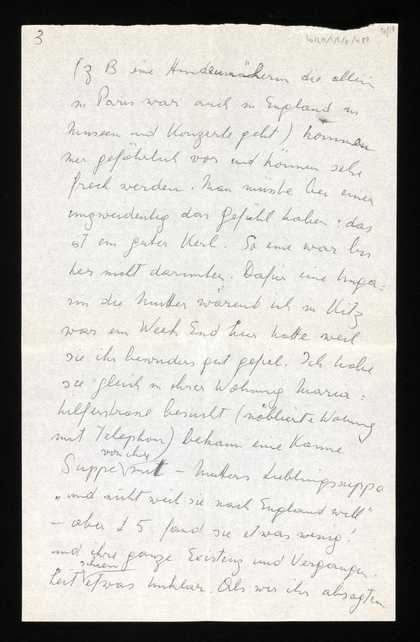 3
(z B eine Hundezüchterin die allein
in Paris war auch in England in
Museen und Konzerte geht) kommen
mir gefährlich vor und können sehr
frech werden. Man müsste bei einer
unzweideutig das Gefühl haben: das
ist ein guter Kerl. So eine war bis
her nicht darunter. Dafür eine Unga=
rin die Mutter während ich in Kitz
war ein Week End hier hatte weil
sie ihr besonders gut gefiel. Ich habe
sie gleich in ihrer Wohnung Maria=
hilferstrasse besucht (möblierte Wohnung
mit Telephon) bekam eine Kanne
Suppe von ihr mit – Mutters Lieblingssuppe
„und nicht weil sie nach England will"
– aber £ 5 fand sie etwas wenig!
und ihre ganze Existenz und Vergangen=
heit schien etwas unklar. Als wir ihr absagten